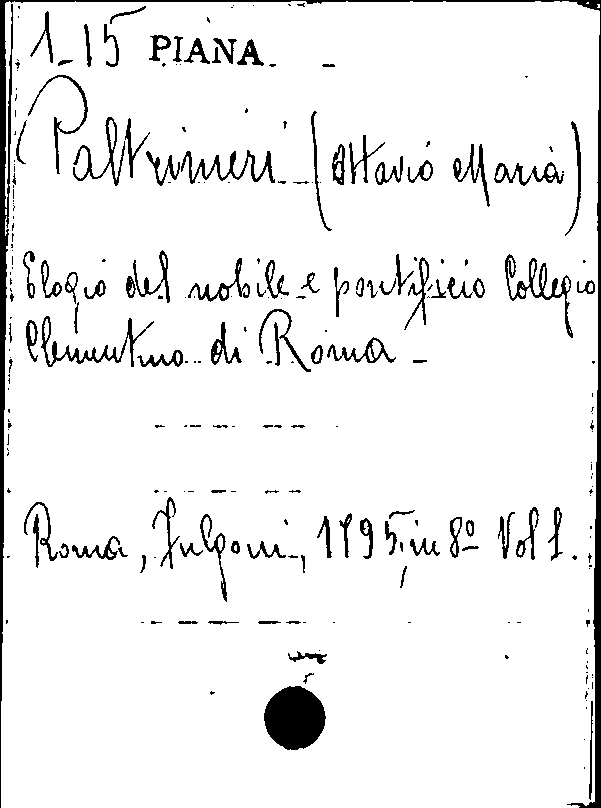 1-15 PIANA
Paltrinieri (Ottavio Maria)
Elogio del nobile e pontificio Collegio
Clementino di Roma -
Roma, Fulgoni, 1795, in 8º Vol 1.